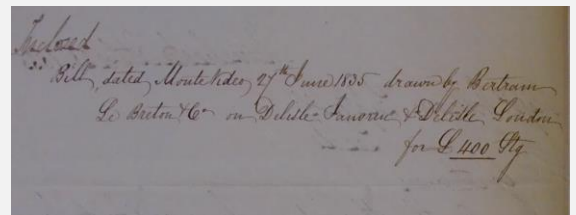 Inclosed
Bill, dated Monte Video 27th June 1835 drawn by Bertram
Le Breton & Co on Delisle Janvrin & Delisle London
for £ 400 Stg